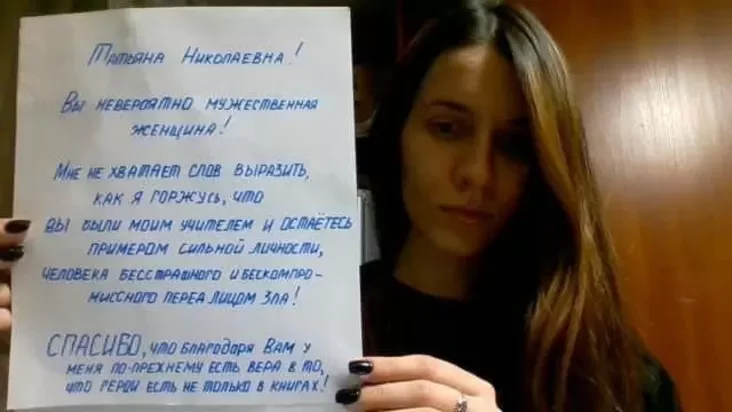 Татьяна Николаевна!
Вы невероятно мужественная
женщина!
Мне не хватает слов выразить,
как я горжусь, что
Вы были моим учителем и остаётесь
примером сильной личности,
человека бесстрашного и бескомпро-
миссного перед лицом Зла!
СПАСИБО, что благодаря Вам у
меня по-прежнему есть вера в то,
что герои есть не только в книгах!